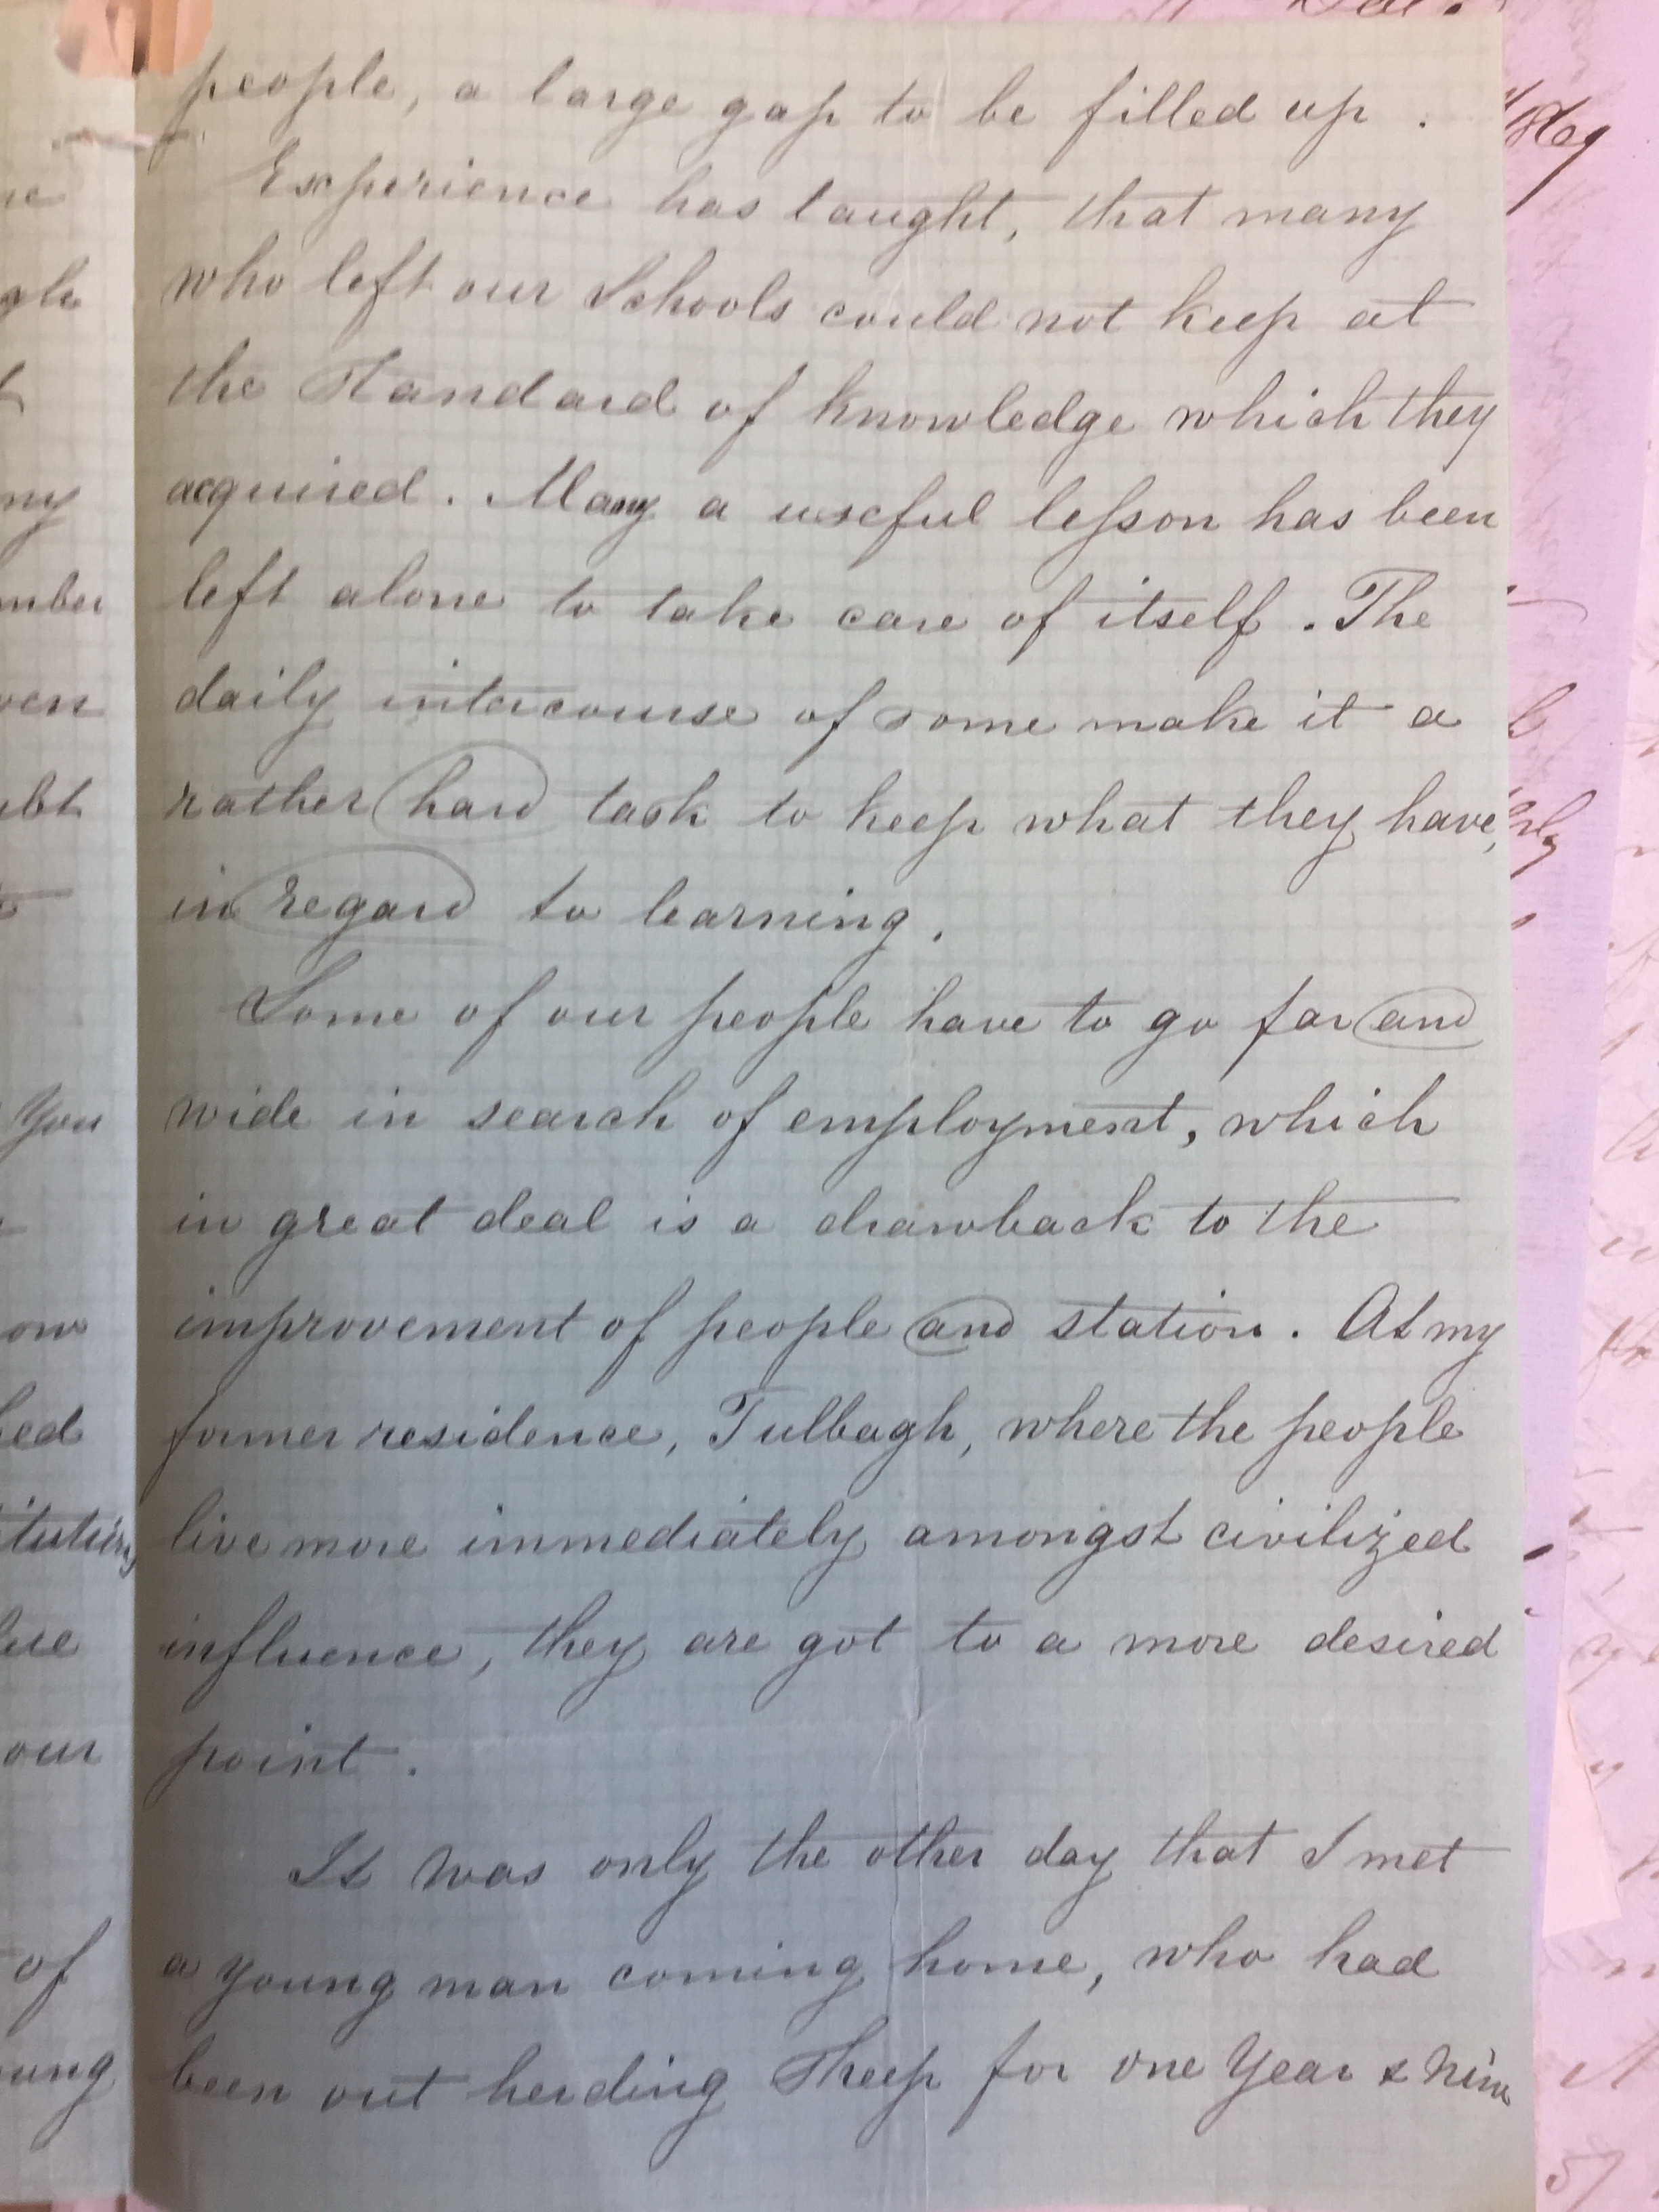 people, a large gap to be filled up.
Experience has taught, that many
who left our Schools could not keep at
the Standard of knowledge which they
acquired. Many a useful lesson has been
left alone to take care of itself. The
daily intercourse of some make it a
rather hard task to keep what they have,
in regard to learning.
Some of our people have to go far and
wide in search of employment, which
in great deal is a drawback to the
improvement of people and station. At my
former residence, Tulbagh, where the people
live more immediately amongst civilized
influence, they are got to a more desired
point.
It was only the other day that I met
a young man coming home, who had
been out herding Sheep for one Year & Nine